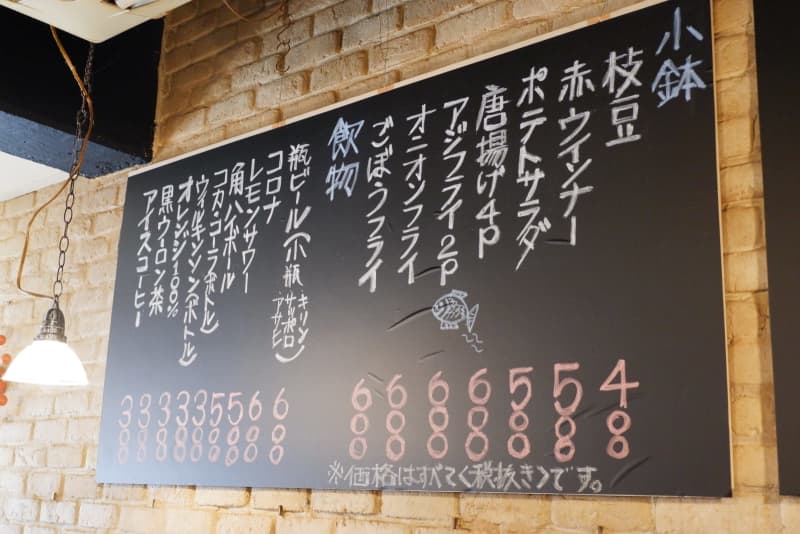 小鉢
枝豆 400
赤ウインナー 500
ポテトサラダ 500
唐揚げ4P 600
アジフライ2P 600
オニオンフライ 600
ごぼうフライ 600
飲物
瓶ビール(小瓶 キリン サッポロ アサヒ) 600
コロナ 600
レモンサワー 500
角ハイボール 500
コカ・コーラ(ボトル) 300
ウィルキンソン(ボトル) 300
オレンジ100% 300
黒ウーロン茶 300
アイスコーヒー 300
※価格はすべて<税抜き>です。